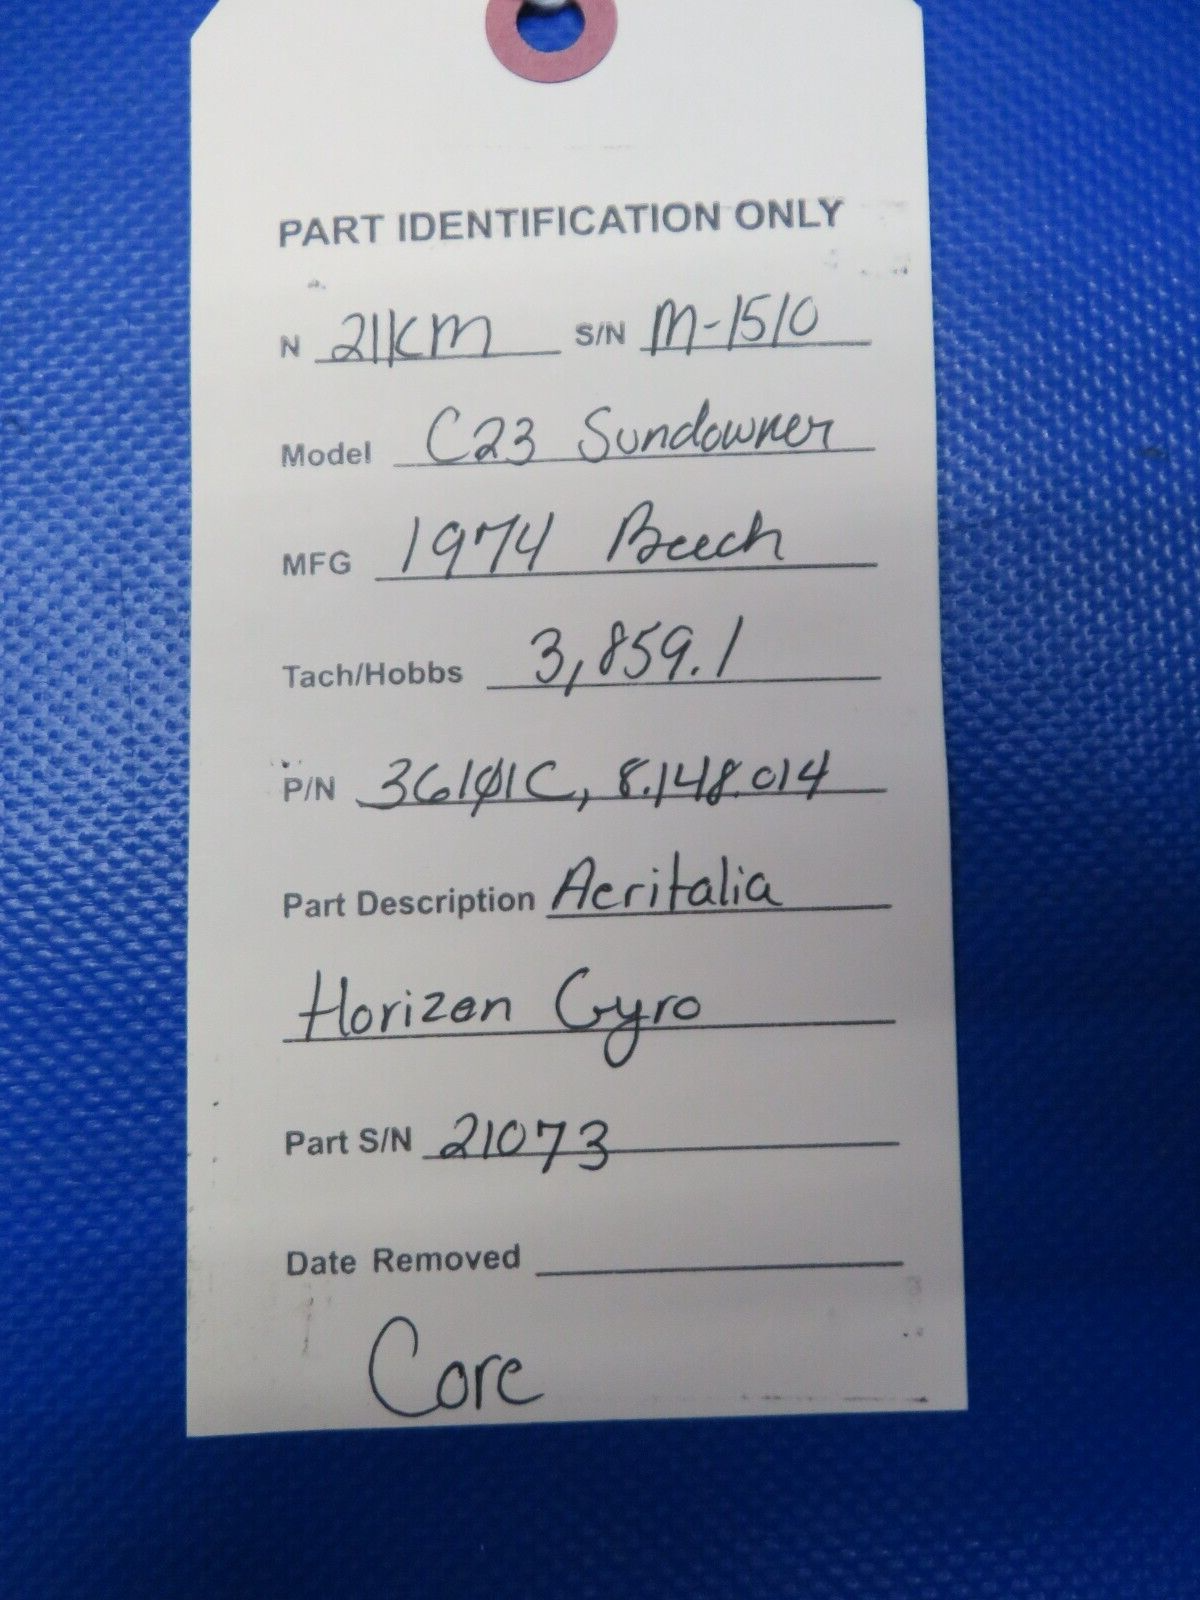 PART IDENTIFICATION ONLY
N 21KM S/N M-1510
Model C23 Sundowner
MFG 1974 Beech
Tach/Hobbs 3,859.1
P/N 36101C, 8.148.014
Part Description Aeritalia
Horizon Gyro
Part S/N 21073
Date Removed
Core